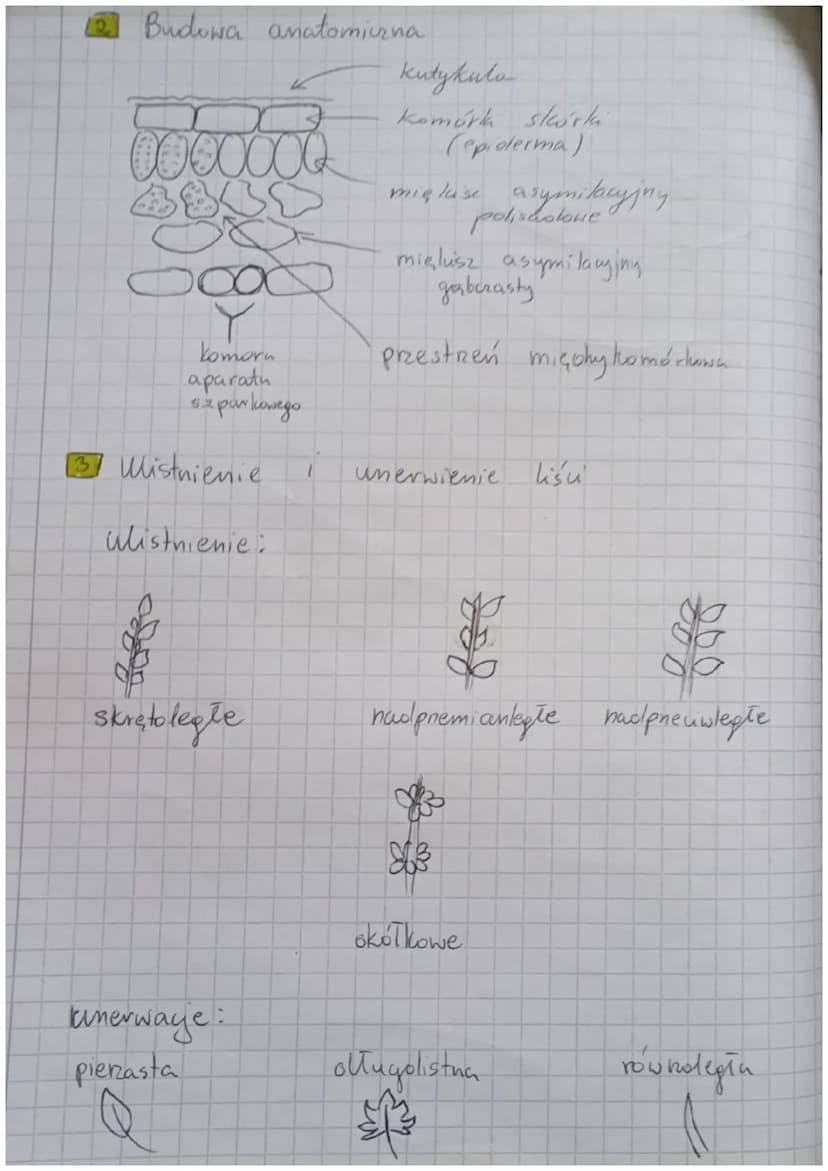 2 Budowa anatomiczna
kutykula
komórki skórki
(epiderma)
miękisz asymilacyjny
palisadowe
miękisz asymilacyjny
gąbczasty
przestrzeń międzykomórkowa
komora
aparatu
szparkowego
3 Ulistnienie i unerwienie liści
Ulistnienie:
skrętoległe
nadprzemianległe
nadprzeciwległe
okółkowe
unerwacje:
pierzasta
długolistna
równoległa